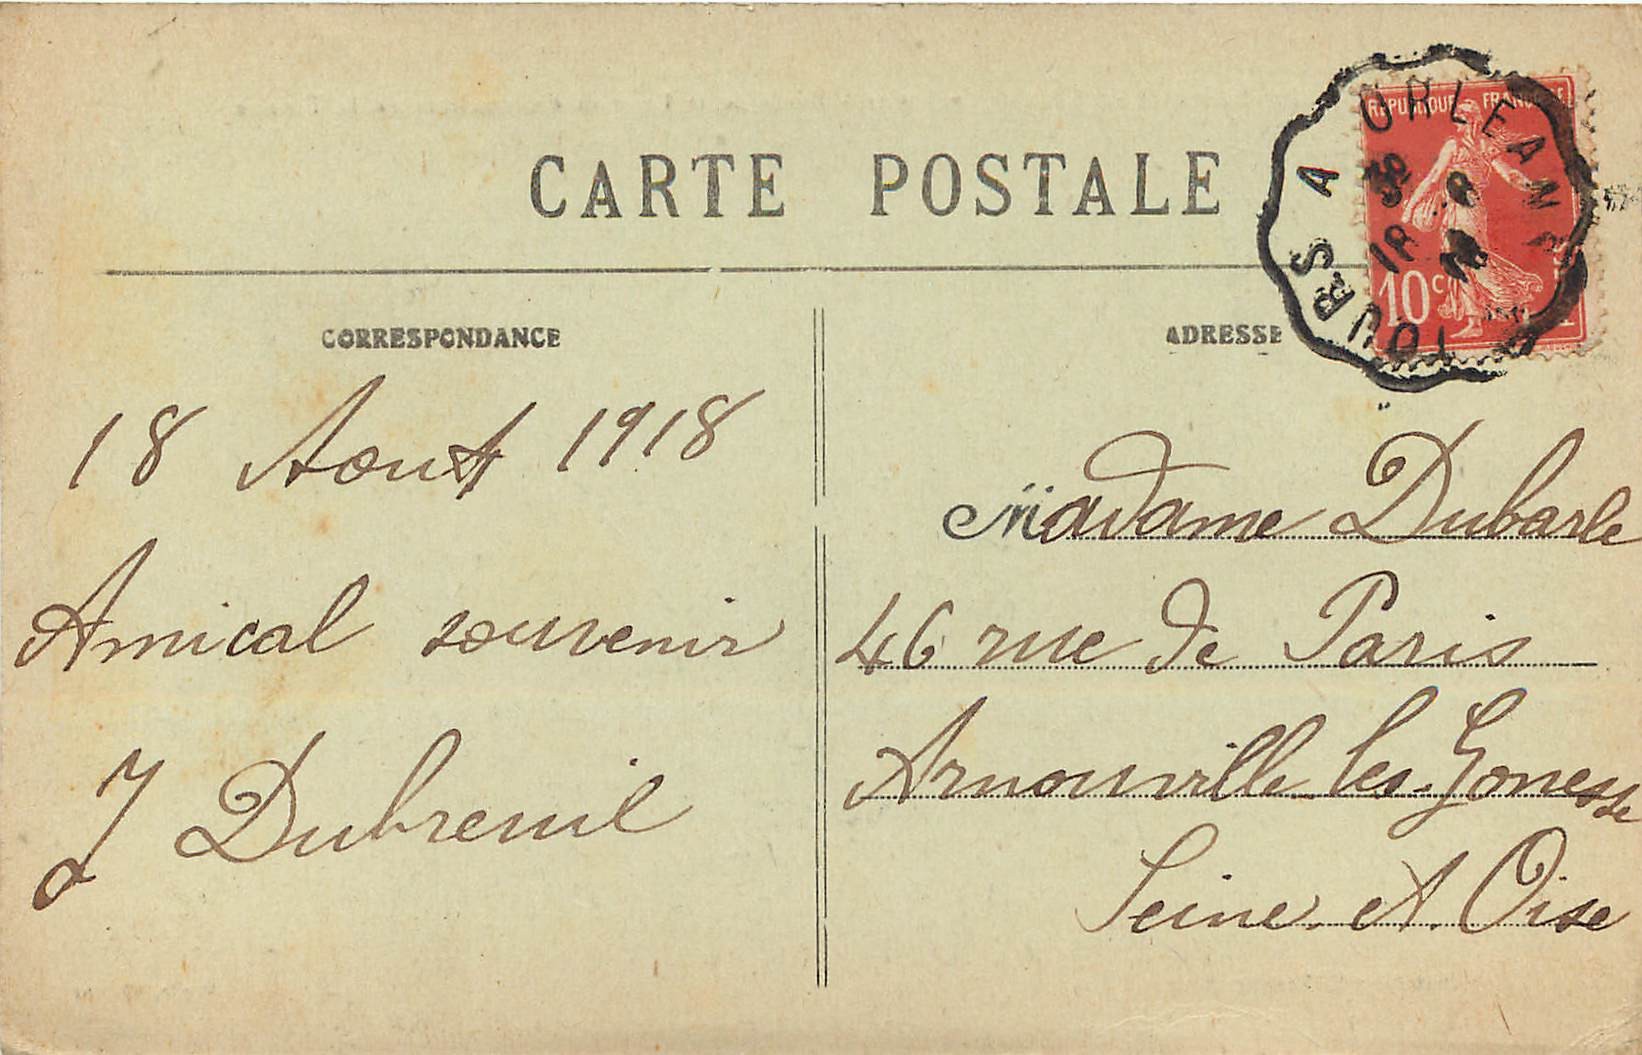 CARTE POSTALE
CORRESPONDANCE
ADRESSE
REPUBLIQUE FRANÇAISE
10 c
TOURS A ORLEANS
18 Aout 1918
Amical souvenir
J Dubreuil
Madame Dubarle
46 rue de Paris
Arnouville les Gonesse
Seine et Oise